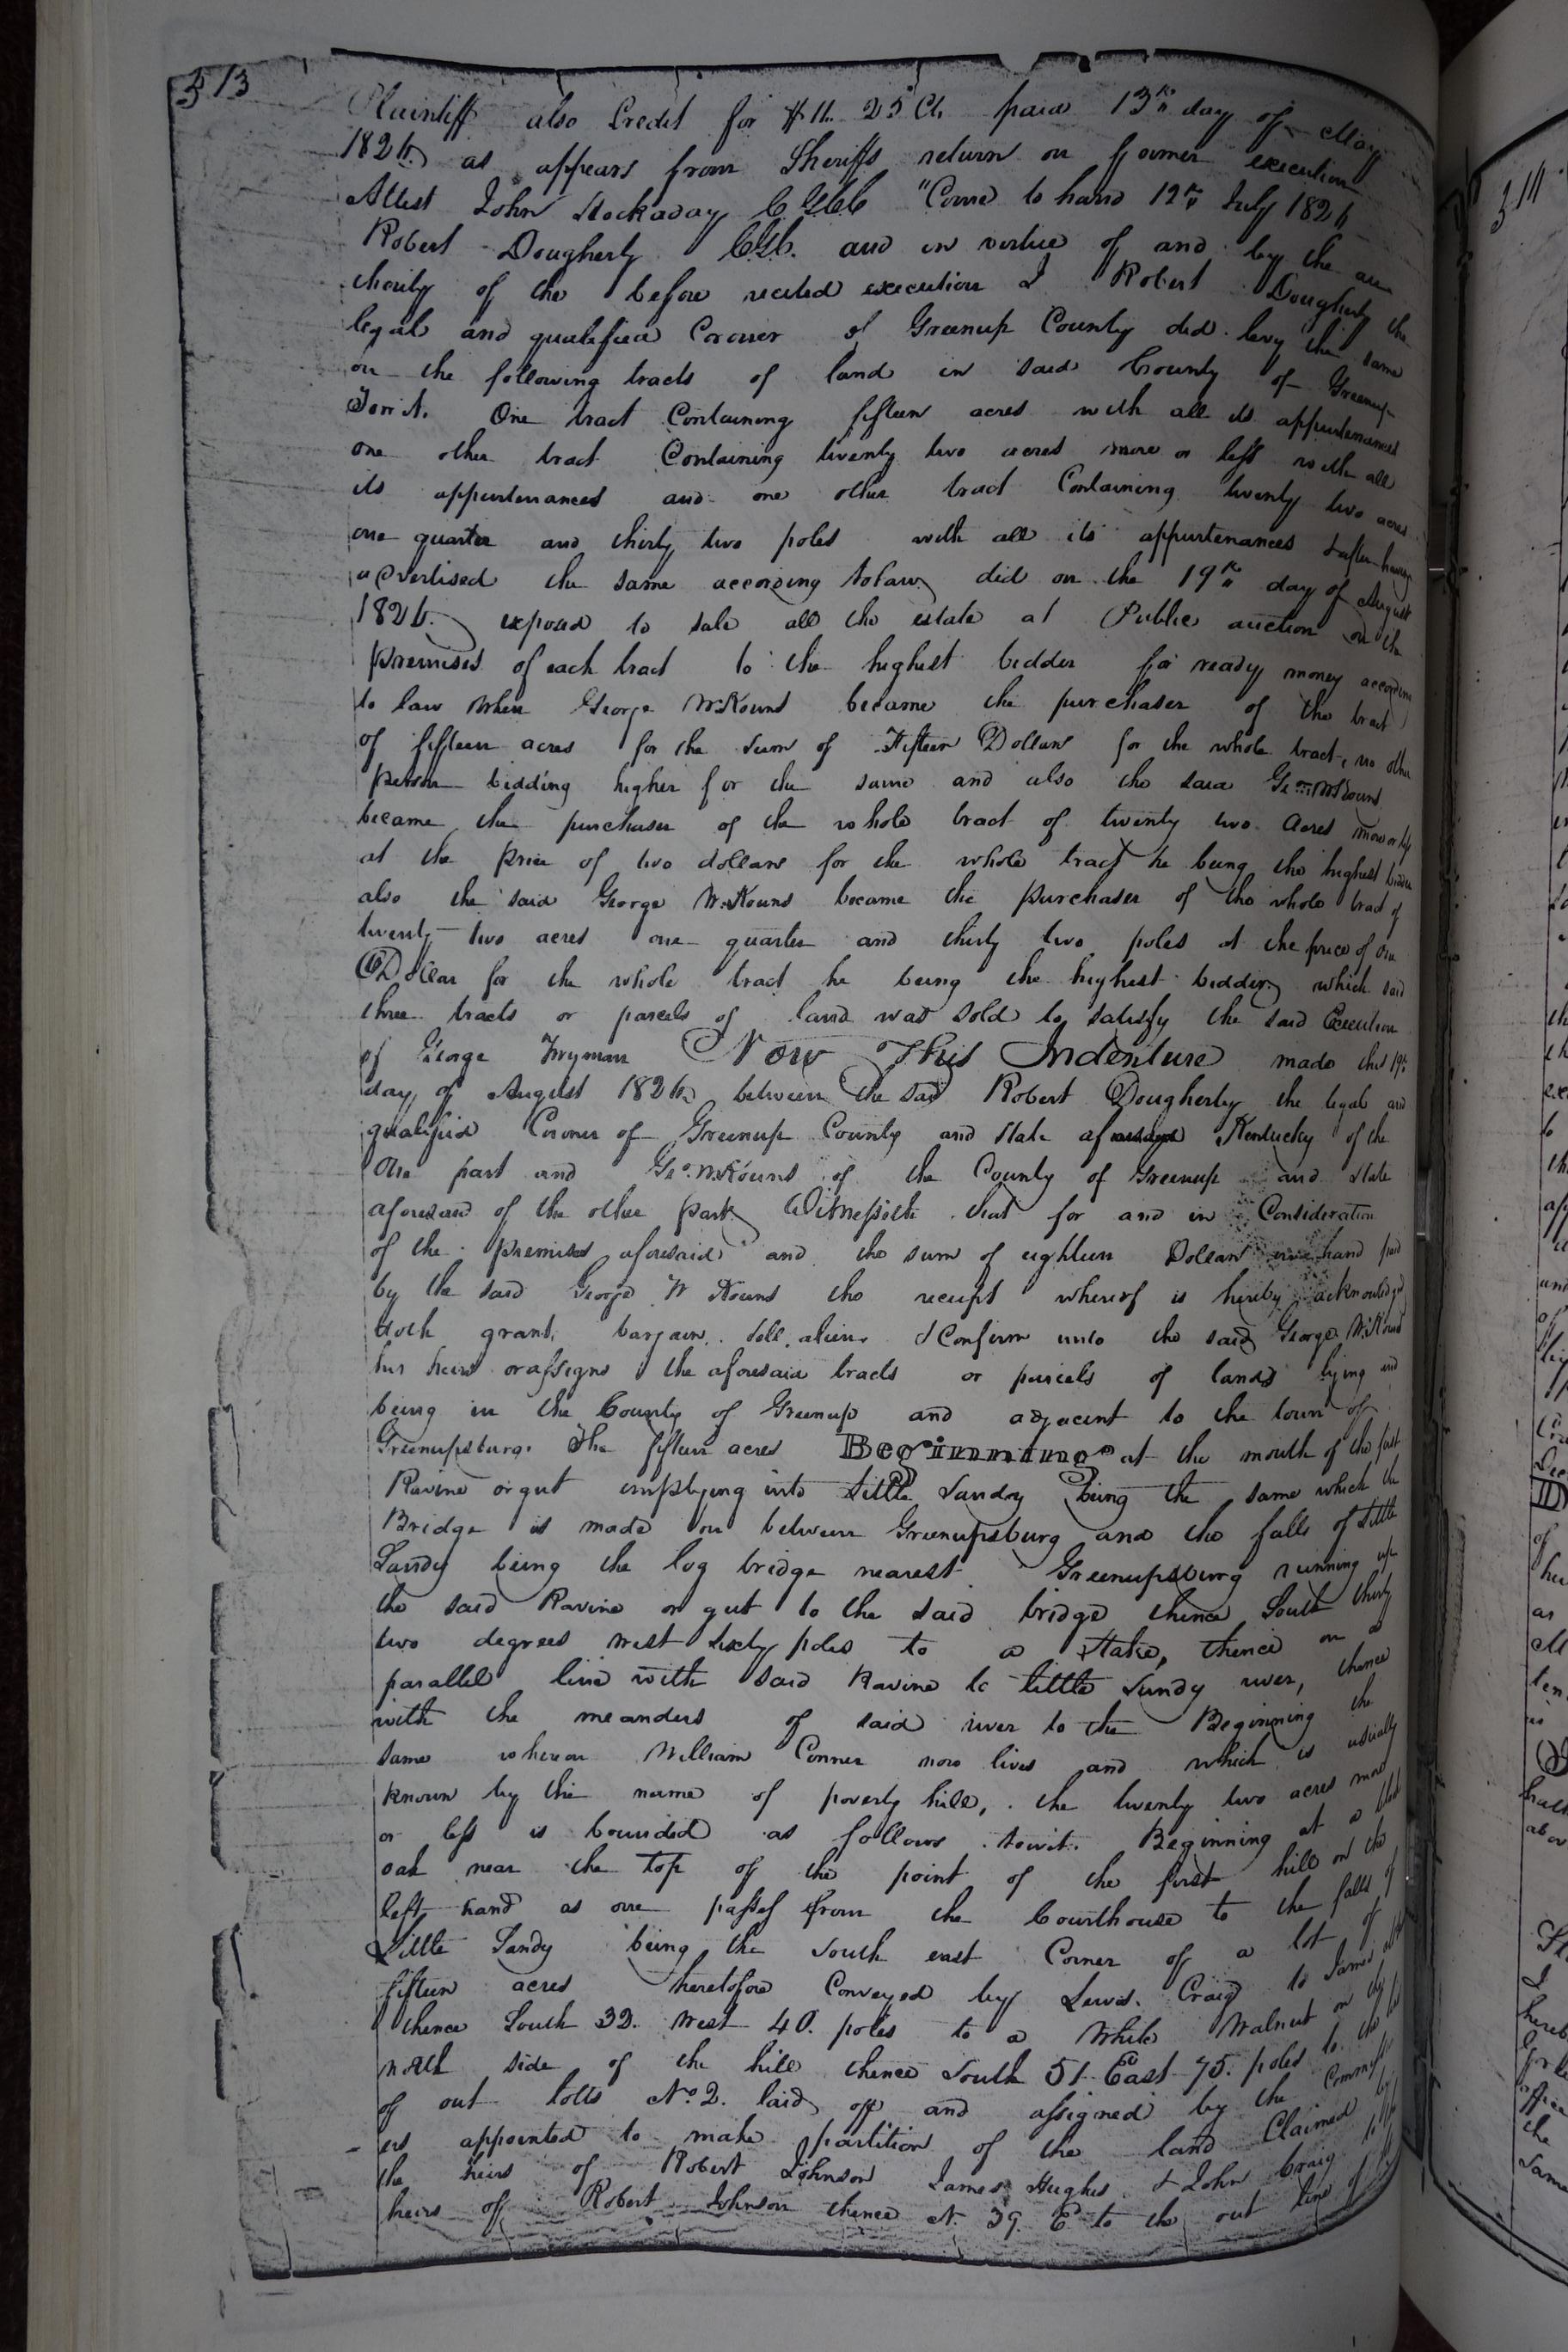 313
Plaintiff also Credit for $11. 25 Cts paid 13th day of May
1824 as appears from Sheriffs return on former execution
Attest John Hockaday C.G.C.C "Came to hand 12th July 1824
Robert Dougherty C.G.C. and in virtue of and by the au
thority of the before recited execution I Robert Dougherty the
legal and qualified Coroner of Greenup County did levy the same
on the following tracts of land in said County of Greenup
Towit. One tract Containing fifteen acres with all its appurtenances
one other tract Containing twenty two acres more or less with all
its appurtenances and one other tract Containing twenty two acres
one quarter and thirty two poles with all its appurtenances & after having
advertised the same according to law did on the 19th day of August
1824 expose to sale all the estate at Public auction on the
premises of each tract to the highest bidder for ready money according
to law when George W. Kouns became the purchaser of the tract
of fifteen acres for the Sum of Fifteen Dollars for the whole tract, no other
person bidding higher for the same and also the said Geo. W Kouns
became the purchaser of the whole tract of twenty two Acres more or less
at the price of two dollars for the whole tract he being the highest bidder
also the said George W. Kouns became the purchaser of the whole tract of
twenty two acres one quarter and thirty two poles at the price of One
Dollar for the whole tract he being the highest bidder, which said
three tracts or parcels of land was sold to satisfy the said Execution
of George Fryman Now This Indenture made this 19th
day of August 1824 between the said Robert Dougherty the legal and
qualified Coroner of Greenup County and State aforesaid Kentucky of the
One part and Geo. W. Kouns of the County of Greenup and State
aforesaid of the other part Witnesseth that for and in Consideration
of the premises aforesaid and the sum of eighteen Dollars in hand paid
by the said George W Kouns the receipt whereof is hereby acknowledged
doth grant, bargain. Sell, alien & Confirm unto the said George W. Kouns
his heirs or assigns the aforesaid tracts or parcels of lands lying and
being in the County of Greenup and adjacent to the town of
Greenupsburg. The fifteen acres Beginning at the mouth of the first
Ravine or gut emptying into Little Sandy being the same which the
Bridge is made on between Greenupsburg and the falls of Little
Sandy being the log bridge nearest Greenupsburg running up
the said Ravine or gut to the said bridge thence South thirty
two degrees West Sixty poles to a Stake, thence on a
parallel line with said Ravine to little Sandy river, thence
with the meanders of said river to the Beginning the
same whereon William Conner now lives and which is usually
known by the name of poverty hill, the twenty two acres more
or less is bounded as follows towit. Beginning at a black
oak near the top of the point of the first hill on the
left hand as one passes from the Courthouse to the falls of
Little Sandy being the South east Corner of a lot of
fifteen acres heretofore Conveyed by Lewis. Craig to James
thence South 32. West 40. poles to a White Walnut on the
north side of the hill thence South 51 East 75. poles to the
of out lotts No. 2. laid off and assigned by the Commission
ers appointed to make partition of the land Claimed by
the heirs of Robert Johnson James Hughes & John Craig to the
heirs of Robert Johnson thence N. 39. E to the out line of